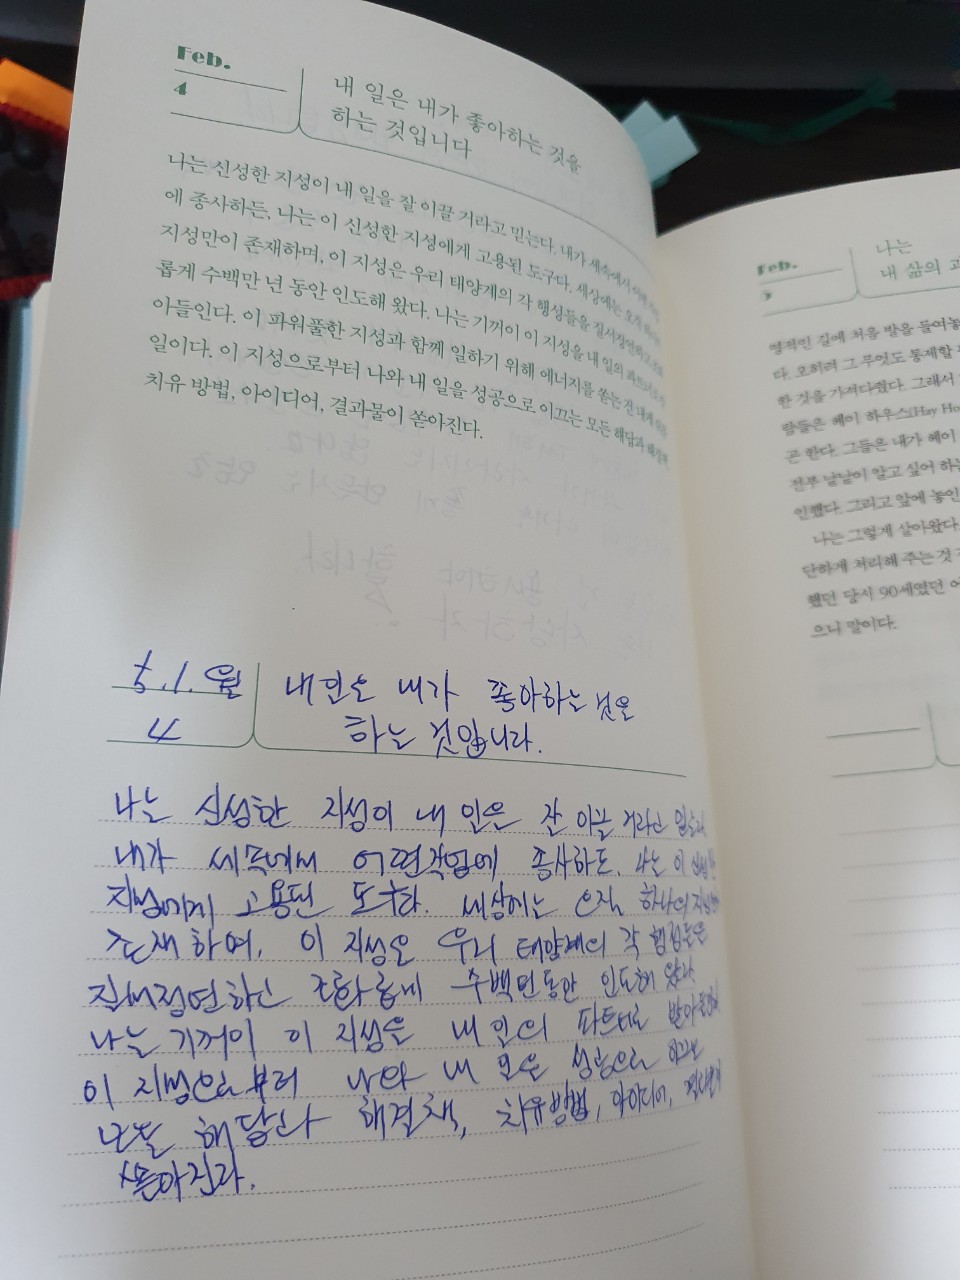 Feb.
4
내 일은 내가 좋아하는 것을
하는 것입니다
나는 신성한 지성이 내 일을 잘 이끌 거라고 믿는다. 내가 세속에서
에 종사하든, 나는 이 신성한 지성에게 고용된 도구다. 세상에는 오직
지성만이 존재하며, 이 지성은 우리 태양계의 각 행성들을 질서정연하고
롭게 수백만 년 동안 인도해 왔다. 나는 기꺼이 이 지성을 내 일의 파트너로
아들인다. 이 파워풀한 지성과 함께 일하기 위해 에너지를 쏟는 건 내게
일이다. 이 지성으로부터 나와 내 일을 성공으로 이끄는 모든 해답과 해결책,
치유 방법, 아이디어, 결과물이 쏟아진다.
월
4
내 일은 내가 좋아하는 것을
하는 것입니다.
나는 신성한 지성이 내 일은 잘 이끌 거라고
내가 세속에서 어떤 직업에 종사하든, 나는 이
지성에게 고용된 도구다. 세상에는 오직 하나의
존재하며, 이 지성은 우리 태양계의 각 행성들은
질서정연하고 조화롭게 수백만년동안 인도해 왔다
나는 기꺼이 이 지성을 내 일의 파트너로
이 지성으로부터 나와 내 일을 성공으로 이끄는
모든 해답과 해결책, 치유방법, 아이디어,
쏟아진다.
Feb.
나는
내 삶의
영적인 길에 처음 발을 들여놓
다. 오히려 그 무엇도 통제할
한 것을 가져다줬다. 그래서
람들은 헤이 하우스(Hay Ho
곤 한다. 그들은 내가 헤이
전부 낱낱이 알고 싶어 하는
인했다. 그리고 앞에 놓인
나는 그렇게 살아왔다.
단하게 처리해 주는 것
했던 당시 90세였던 어
으니 말이다.